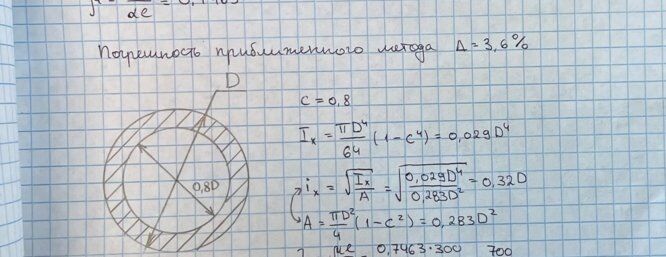 αe
Погрешность приближенного метода Δ = 3,6%
D
c = 0,8
Iₓ = πD⁴/64 (1-c⁴) = 0,029D⁴
0,8D
iₓ = √(Iₓ/A) = √(0,029D⁴/0,283D²) = 0,32D
A = πD²/4 (1-c²) = 0,283D²
0,7463·300 700